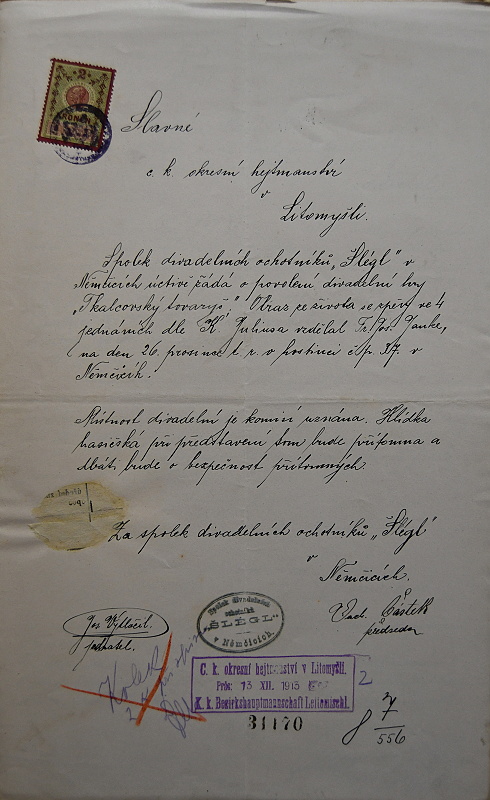 2
Slavné
c. k. okresní hejtmanství
v
Litomyšli.
Spolek divadelních ochotníků „Šlégl" v
Němčicích uctivě žádá o povolení divadelní hry
„Tkalcovský tovaryš", Obraz ze života se zpěvy ve 4
jednáních dle K. Juliusa vzdělal Fr. Jos. 
na den 26. prosince t. r. v hostinci č. p. 37. v
Němčicích.
Místnost divadelní je komisí uznána. Hlídka
hasičská při představení tom bude přítomna a
dbáti bude o bezpečnost přítomných.
Za spolek divadelních ochotníků „Šlégl"
v
Němčicích.
Vacl. Částek
předseda
Jos.
jednatel.
Spolek divadelních
ochotníků
"ŠLÉGL"
v Němčicích.
Kolek
2 K
C. k. okresní hejtmanství v Litomyšli.
Präs: 13 XII. 1913
K. k. Bezirkshauptmannschaft Leitomischl.
2
31170
8 7
556